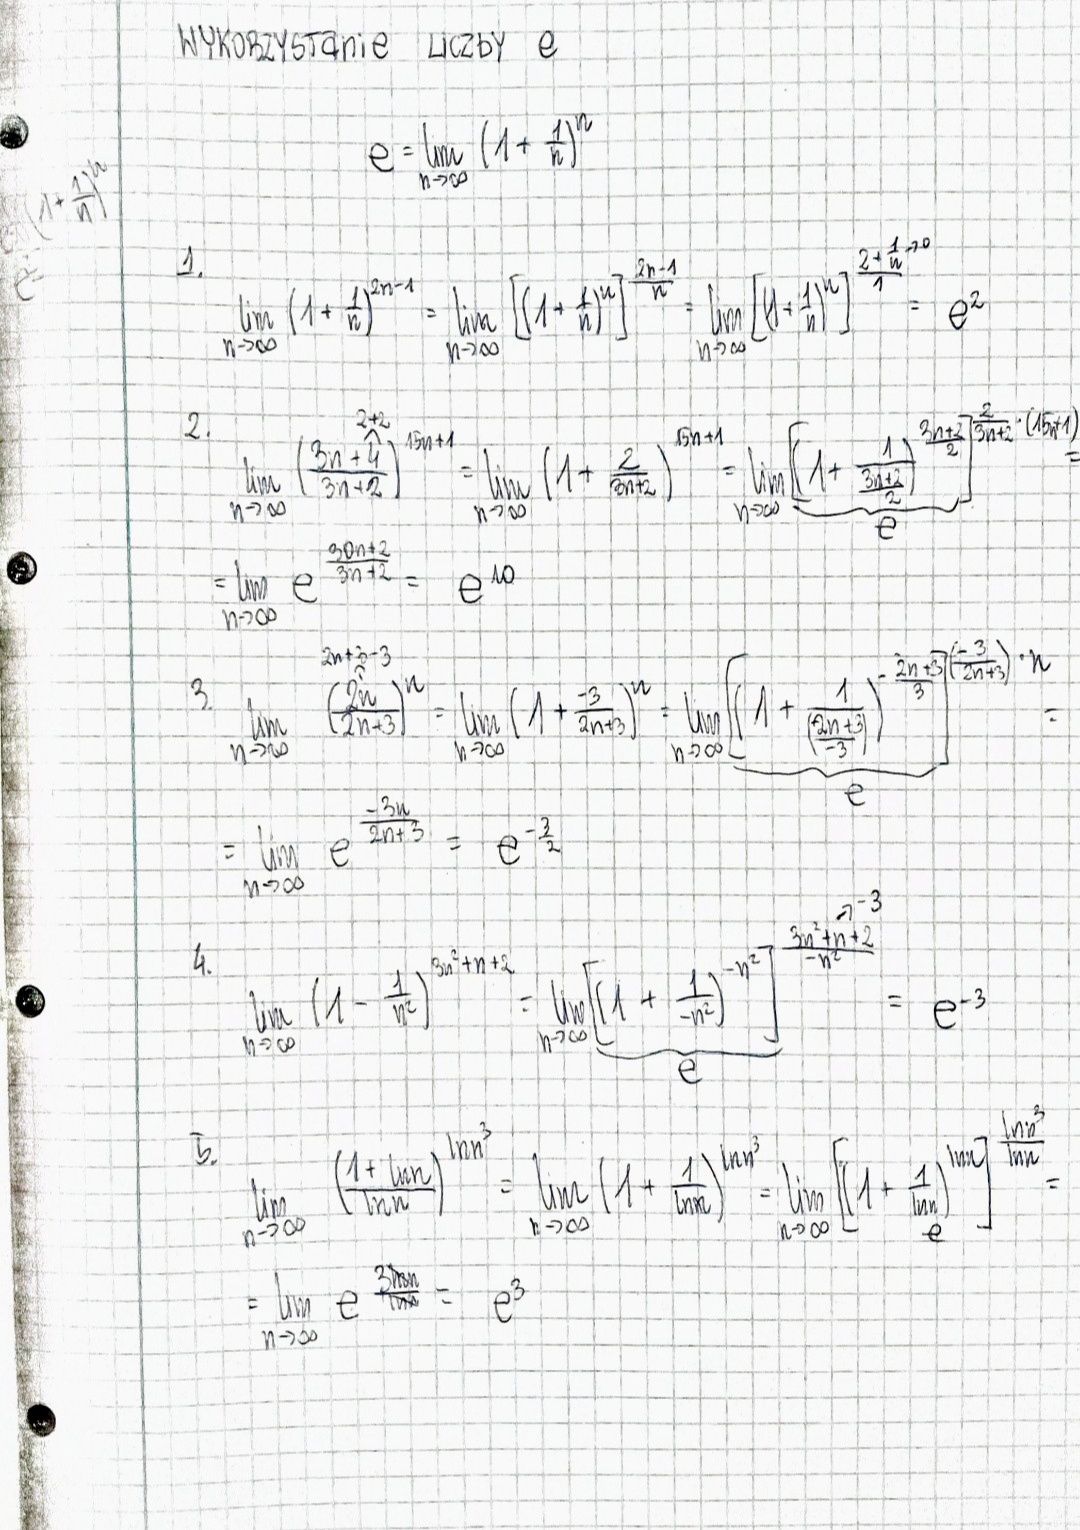 WYKORZYSTanie LICZBY e
e = lim n→∞ (1 + 1/n)^n
(1 + 1/n)^n
e =
1.
lim n→∞ (1 + 1/n)^(2n-1) = lim n→∞ [(1 + 1/n)^n]^((2n-1)/n) = lim n→∞ [(1 + 1/n)^n]^((2 + 1/n →0)/1) = e^2
2.
2+2
lim n→∞ ((3n+4)/(3n+2))^(15n+1) = lim n→∞ (1 + 2/(3n+2))^(15n+1) = lim n→∞ [(1 + 1/((3n+2)/2))^((3n+2)/2)]^(2/(3n+2) · (15n+1)) =
e
= lim n→∞ e^((30n+2)/(3n+2)) = e^10
2n+3-3
3. lim n→∞ (2n/(2n+3))^n = lim n→∞ (1 + -3/(2n+3))^n = lim n→∞ [(1 + 1/((2n+3)/-3))^(-(2n+3)/3)]^((-3/(2n+3)) · n) =
e
= lim n→∞ e^(-3n/(2n+3)) = e^(-3/2)
→ -3
4. lim n→∞ (1 - 1/n²)^(3n²+n+2) = lim n→∞ [(1 + 1/-n²)^(-n²)]^((3n²+n+2)/-n²) = e^-3
e
5. lim n→∞ ((1 + ln n)/ln n)^(ln n³) = lim n→∞ (1 + 1/ln n)^(ln n³) = lim n→∞ [(1 + 1/ln n)^(ln n)]^(ln n³/ln n) =
e
= lim n→∞ e^(3 ln n/ln n) = e^3